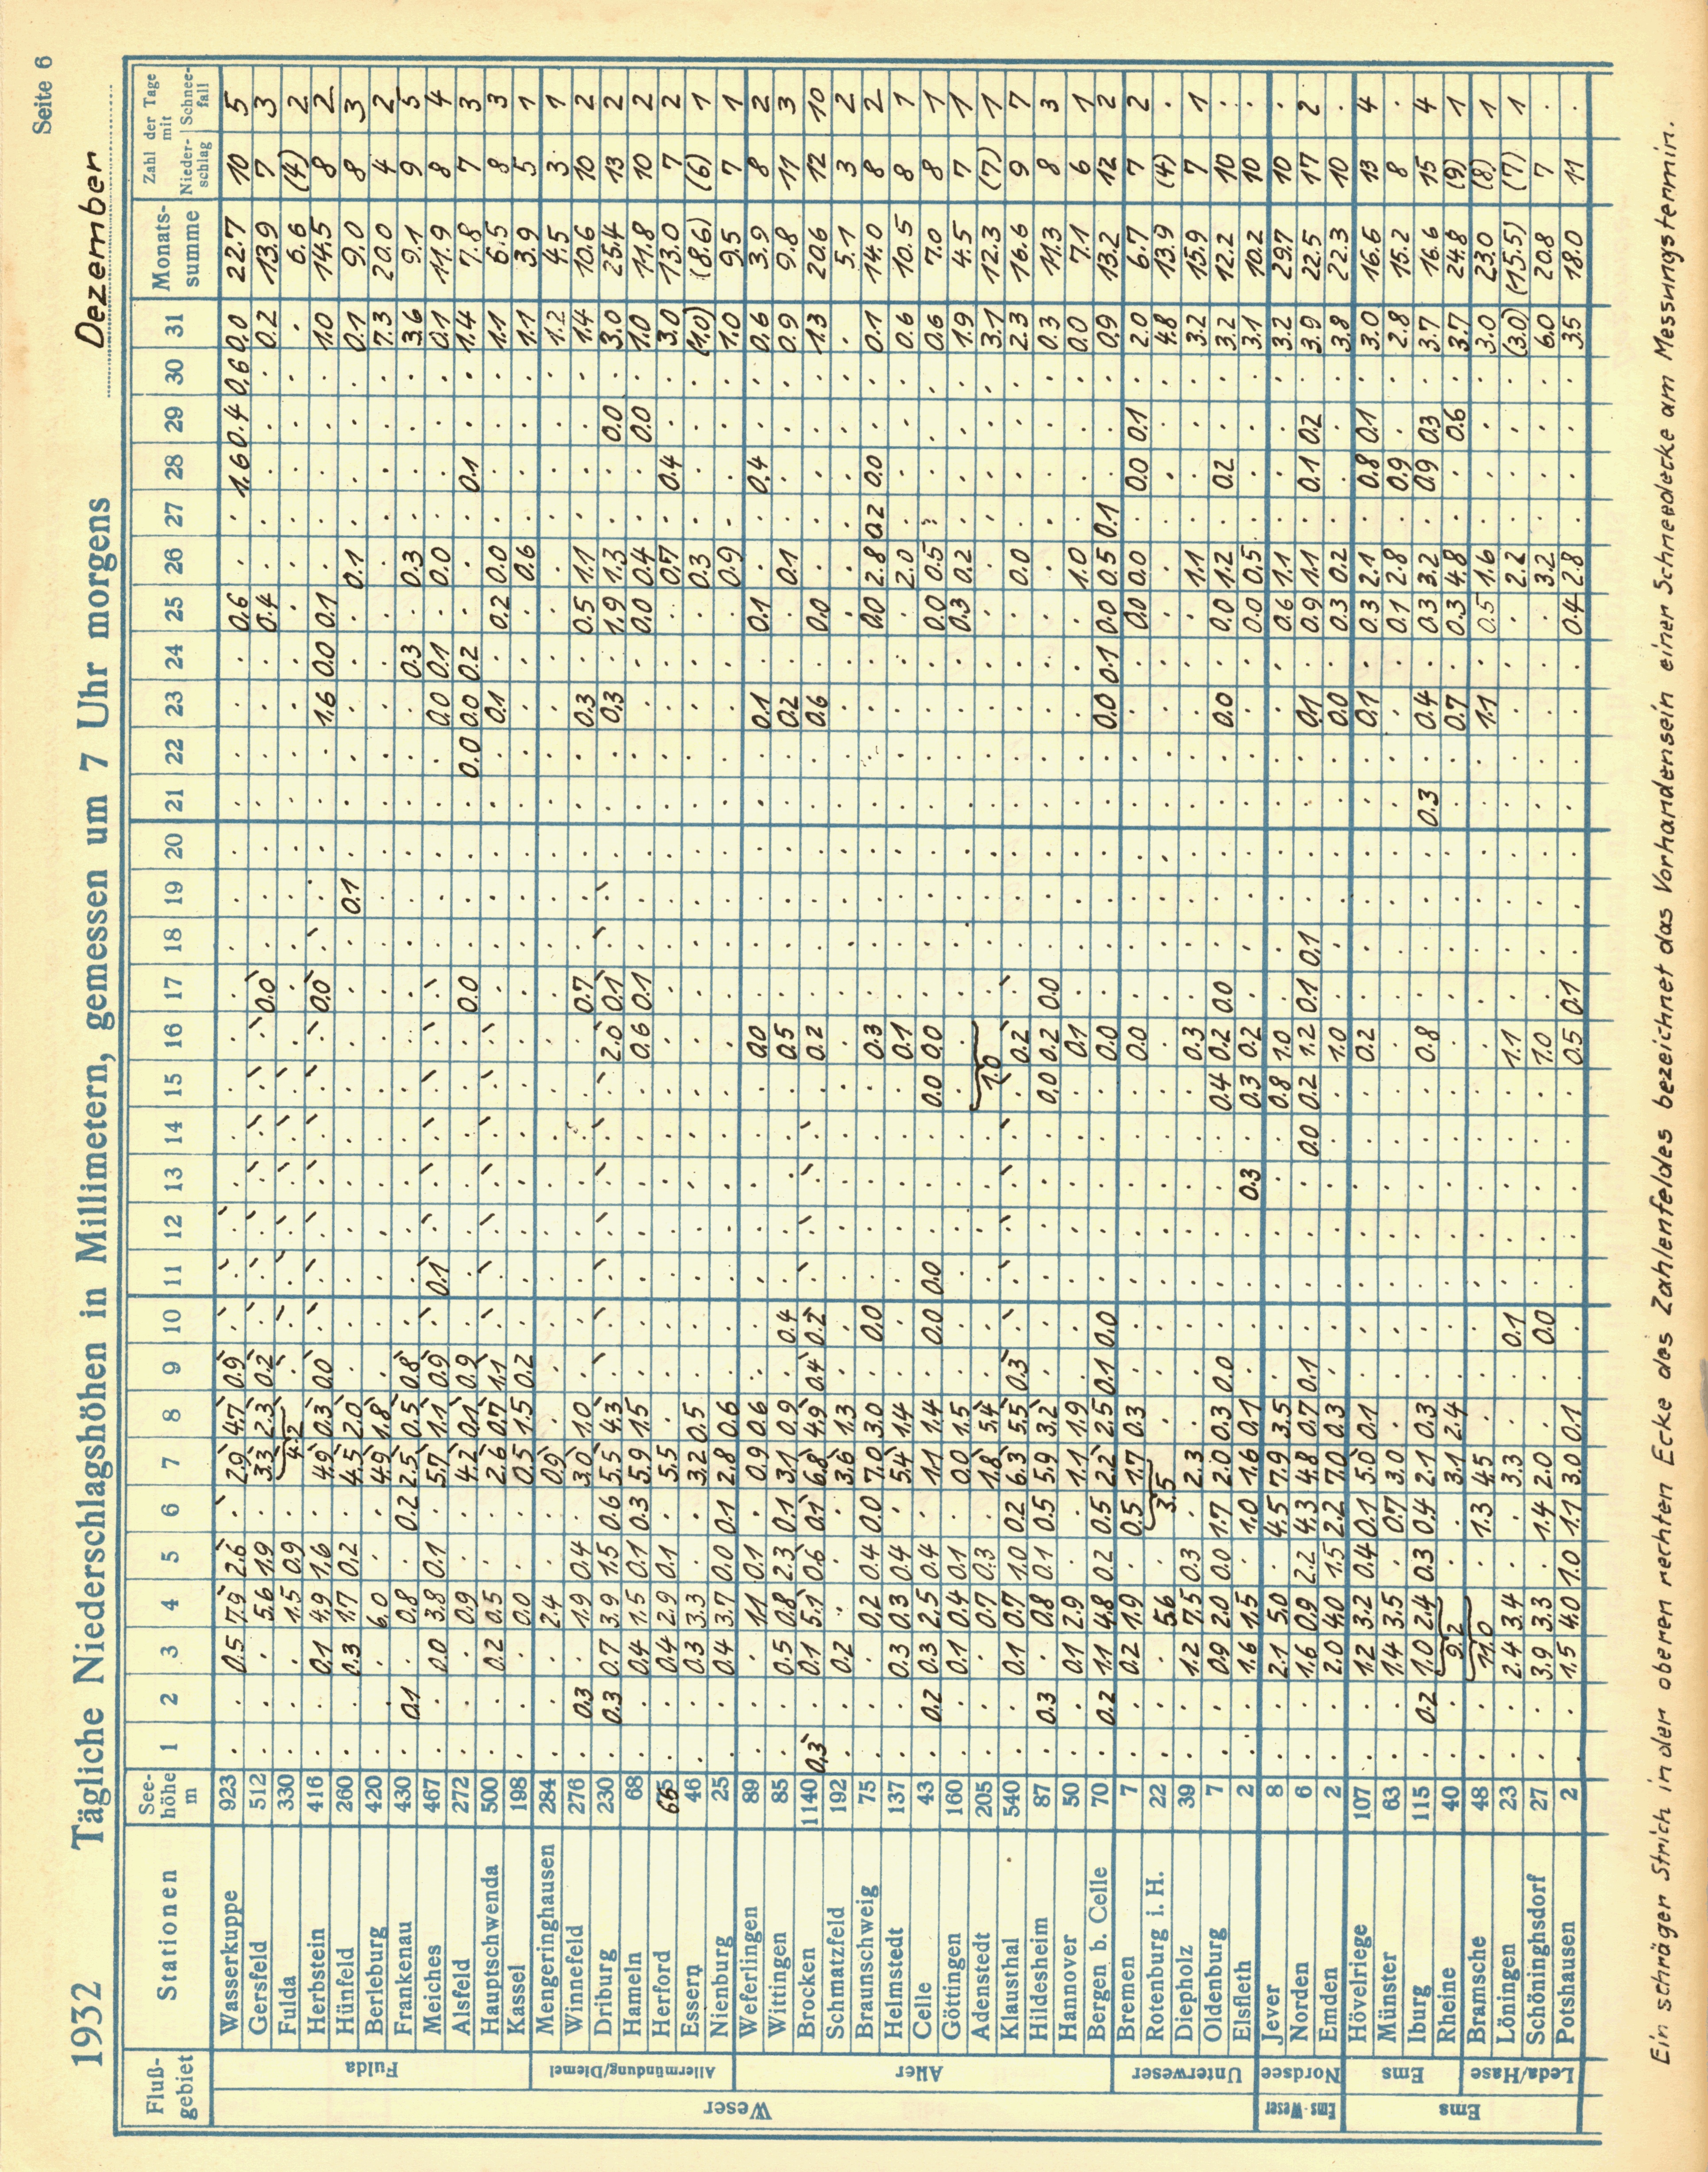 Seite 6
1932 Tägliche Niederschlagshöhen in Millimetern, gemessen um 7 Uhr morgens Dezember
Fluß-gebiet Stationen See-höhe m 1 2 3 4 5 6 7 8 9 10 11 12 13 14 15 16 17 18 19 20 21 22 23 24 25 26 27 28 29 30 31 Monats-summe Zahl der Tage mit Nieder-schlag Schnee-fall
Weser
Fulda
Wasserkuppe 923 . . 0.5 7.9 2.6 . 2.9 4.7 0.9 . . . . . . . . . . . . . . . 0.6 . . 1.6 0.4 0.6 0.0 22.7 10 5
Gersfeld 512 . . . 5.6 1.9 . 3.3 2.3 0.2 . . . . . . . 0.0 . . . . . . . 0.4 . . . . . 0.2 13.9 7 3
Fulda 330 . . . 1.5 0.9 . 4.2 . . . . . . . . . . . . . . . . . . . . . . . 6.6 (4) 2
Herbstein 416 . . 0.1 4.9 1.6 . 4.9 0.3 0.0 . . . . . . . 0.0 . . . . . 1.6 0.0 0.1 . . . . . 1.0 14.5 8 2
Hünfeld 260 . . 0.3 1.7 0.2 . 4.5 2.0 . . . . . . . . . . 0.1 . . . . . . 0.1 . . . . 0.1 9.0 8 3
Berleburg 420 . . . 6.0 . . 4.9 1.8 . . . . . . . . . . . . . . . . . . . . . . 7.3 20.0 4 2
Frankenau 430 . 0.1 . 0.8 . 0.2 2.5 0.5 0.8 . . . . . . . . . . . . . . 0.3 . 0.3 . . . . 3.6 9.1 9 5
Meiches 467 . . 0.0 3.8 0.1 . 5.7 1.1 0.9 . 0.1 . . . . . . . . . . . 0.0 0.1 . 0.0 . . . . 0.1 11.9 8 4
Alsfeld 272 . . . 0.9 . . 4.2 0.1 0.9 . . . . . . . 0.0 . . . . 0.0 0.0 0.2 . . . 0.1 . . 1.4 7.8 7 3
Hauptschwenda 500 . . 0.2 0.5 . . 2.6 0.7 1.1 . . . . . . . . . . . . . 0.1 . 0.2 0.0 . . . . 1.1 6.5 8 3
Kassel 198 . . . 0.0 . . 0.5 1.5 0.2 . . . . . . . . . . . . . . . . 0.6 . . . . 1.1 3.9 5 1
Allermündung/Diemel
Mengeringhausen 284 . . . 2.4 . . 0.9 . . . . . . . . . . . . . . . . . . . . . . . 1.2 4.5 3 1
Winnefeld 276 . 0.3 . 1.9 0.4 . 3.0 1.0 . . . . . . . . 0.7 . . . . . 0.3 . 0.5 1.1 . . . . 1.4 10.6 10 2
Driburg 230 . 0.3 0.7 3.9 1.5 0.6 5.5 4.3 . . . . . . . 2.0 0.1 . . . . . 0.3 . 1.9 1.3 . . 0.0 . 3.0 25.4 13 2
Hameln 68 . . 0.4 1.5 0.1 0.3 5.9 1.5 . . . . . . . 0.6 0.1 . . . . . . . 0.0 0.4 . . 0.0 . 1.0 11.8 10 2
Herford 66 . . 0.4 2.9 0.1 . 5.5 . . . . . . . . . . . . . . . . . . 0.7 . 0.4 . . 3.0 13.0 7 2
Essern 46 . . 0.3 3.3 . . 3.2 0.5 . . . . . . . . . . . . . . . . . 0.3 . . . . (1.0) (8.6) (6) 1
Nienburg 25 . . 0.4 3.7 0.0 0.1 2.8 0.6 . . . . . . . . . . . . . . . . . 0.9 . . . . 1.0 9.5 7 1
Aller
Weferlingen 89 . . . 1.1 0.1 . 0.9 0.6 . . . . . . . 0.0 . . . . . . 0.1 . 0.1 . . 0.4 . . 0.6 3.9 8 2
Wittingen 85 . . 0.5 0.8 2.3 0.1 3.1 0.9 . 0.4 . . . . . 0.5 . . . . . . 0.2 . . 0.1 . . . . 0.9 9.8 11 3
Brocken 1140 0.3 . 0.1 5.1 0.6 0.1 6.8 4.9 0.4 0.2 . . . . . 0.2 . . . . . . 0.6 . 0.0 . . . . . 1.3 20.6 12 10
Schmatzfeld 192 . . 0.2 . . . 3.6 1.3 . . . . . . . . . . . . . . . . . . . . . . . 5.1 3 2
Braunschweig 75 . . . 0.2 0.4 0.0 7.0 3.0 . 0.0 . . . . . 0.3 . . . . . . . . 0.0 2.8 0.2 0.0 . . 0.1 14.0 8 2
Helmstedt 137 . . 0.3 0.3 0.4 . 5.4 1.4 . . . . . . . 0.1 . . . . . . . . . 2.0 . . . . 0.6 10.5 8 1
Celle 43 . 0.2 0.3 2.5 0.4 . 1.1 1.4 . 0.0 0.0 . . . 0.0 0.0 . . . . . . . . 0.0 0.5 . . . . 0.6 7.0 8 1
Göttingen 160 . . 0.1 0.4 0.1 . 0.0 1.5 . . . . . . . . . . . . . . . . 0.3 0.2 . . . . 1.9 4.5 7 1
Adenstedt 205 . . . 0.7 0.3 . 1.8 5.4 . . . . . . 1.0 . . . . . . . . . . . . . . 3.1 12.3 (7) 1
Klausthal 540 . . 0.1 0.7 1.0 0.2 6.3 5.5 0.3 . . . . . . 0.2 . . . . . . . . . 0.0 . . . . 2.3 16.6 9 7
Hildesheim 87 . 0.3 . 0.8 0.1 0.5 5.9 3.2 . . . . . . 0.0 0.2 0.0 . . . . . . . . . . . . . 0.3 11.3 8 3
Hannover 50 . . 0.1 2.9 . . 1.1 1.9 . . . . . . . 0.1 . . . . . . . . . 1.0 . . . . 0.0 7.1 6 1
Bergen b. Celle 70 . 0.2 1.1 4.8 0.2 0.5 2.2 2.5 0.1 0.0 . . . . . 0.0 . . . . . . 0.0 0.1 0.0 0.5 0.1 . . . 0.9 13.2 12 2
Unterweser
Bremen 7 . . 0.2 1.9 . 0.5 1.7 0.3 . . . . . . . 0.0 . . . . . . . . 0.0 0.0 . 0.0 0.1 . 2.0 6.7 7 2
Rotenburg i. H. 22 . . . 5.6 . 3.5 . . . . . . . . . . . . . . . . . . . . . . . 4.8 13.9 (4) .
Diepholz 39 . . 1.2 7.5 0.3 . 2.3 . . . . . . . . 0.3 . . . . . . . . . 1.1 . . . . 3.2 15.9 7 1
Oldenburg 7 . . 0.9 2.0 0.0 1.7 2.0 0.3 0.0 . . . . . 0.4 0.2 0.0 . . . . . 0.0 . 0.0 1.2 . 0.2 . . 3.2 12.2 10 .
Elsfleth 2 . . 1.6 1.5 . 1.0 1.6 0.1 . . . . 0.3 . 0.3 0.2 . . . . . . . . 0.0 0.5 . . . . 3.1 10.2 10 .
Ems-Weser
Nordsee
Jever 8 . . 2.1 5.0 . 4.5 7.9 3.5 . . . . . . 0.8 1.0 . . . . . . . . 0.6 1.1 . . . . 3.2 29.7 10 .
Norden 6 . . 1.6 0.9 2.2 4.3 4.8 0.7 0.1 . . . . 0.0 0.2 1.2 0.1 0.1 . . . . 0.1 . 0.9 1.1 . 0.1 0.2 . 3.9 22.5 17 2
Emden 2 . . 2.0 4.0 1.5 2.2 7.0 0.3 . . . . . . . 1.0 . . . . . . 0.0 . 0.3 0.2 . . . . 3.8 22.3 10 .
Ems
Ems
Hövelriege 107 . . 1.2 3.2 0.4 0.1 5.0 0.1 . . . . . . . 0.2 . . . . . . 0.1 . 0.3 2.1 . 0.8 0.1 . 3.0 16.6 13 4
Münster 63 . . 1.4 3.5 . 0.7 3.0 . . . . . . . . . . . . . . . . . 0.1 2.8 . 0.9 . . 2.8 15.2 8 .
Iburg 115 . 0.2 1.0 2.4 0.3 0.4 2.1 0.3 . . . . . . . 0.8 . . . . 0.3 . 0.4 . 0.3 3.2 . 0.9 0.3 . 3.7 16.6 15 4
Rheine 40 . . 9.2 . . 3.1 2.4 . . . . . . . . . . . . . . 0.7 . 0.3 4.8 . . 0.6 . 3.7 24.8 (9) 1
Leda/Hase
Bramsche 48 . . 11.0 . 1.3 4.5 . . . . . . . . . . . . . . . 1.1 . 0.5 1.6 . . . . 3.0 23.0 (8) 1
Löningen 23 . . 2.4 3.4 . . 3.3 . . 0.1 . . . . . 1.1 . . . . . . . . . 2.2 . . . . (3.0) (15.5) (7) 1
Schöninghsdorf 27 . . 3.9 3.3 . 1.4 2.0 . . 0.0 . . . . . 1.0 . . . . . . . . . 3.2 . . . . 6.0 20.8 7 .
Potshausen 2 . . 1.5 4.0 1.0 1.1 3.0 0.1 . . . . . . . 0.5 0.1 . . . . . . . 0.4 2.8 . . . . 3.5 18.0 11 .
Ein schräger Strich in der oberen rechten Ecke des Zahlenfeldes bezeichnet das Vorhandensein einer Schneedecke am Messungstermin.